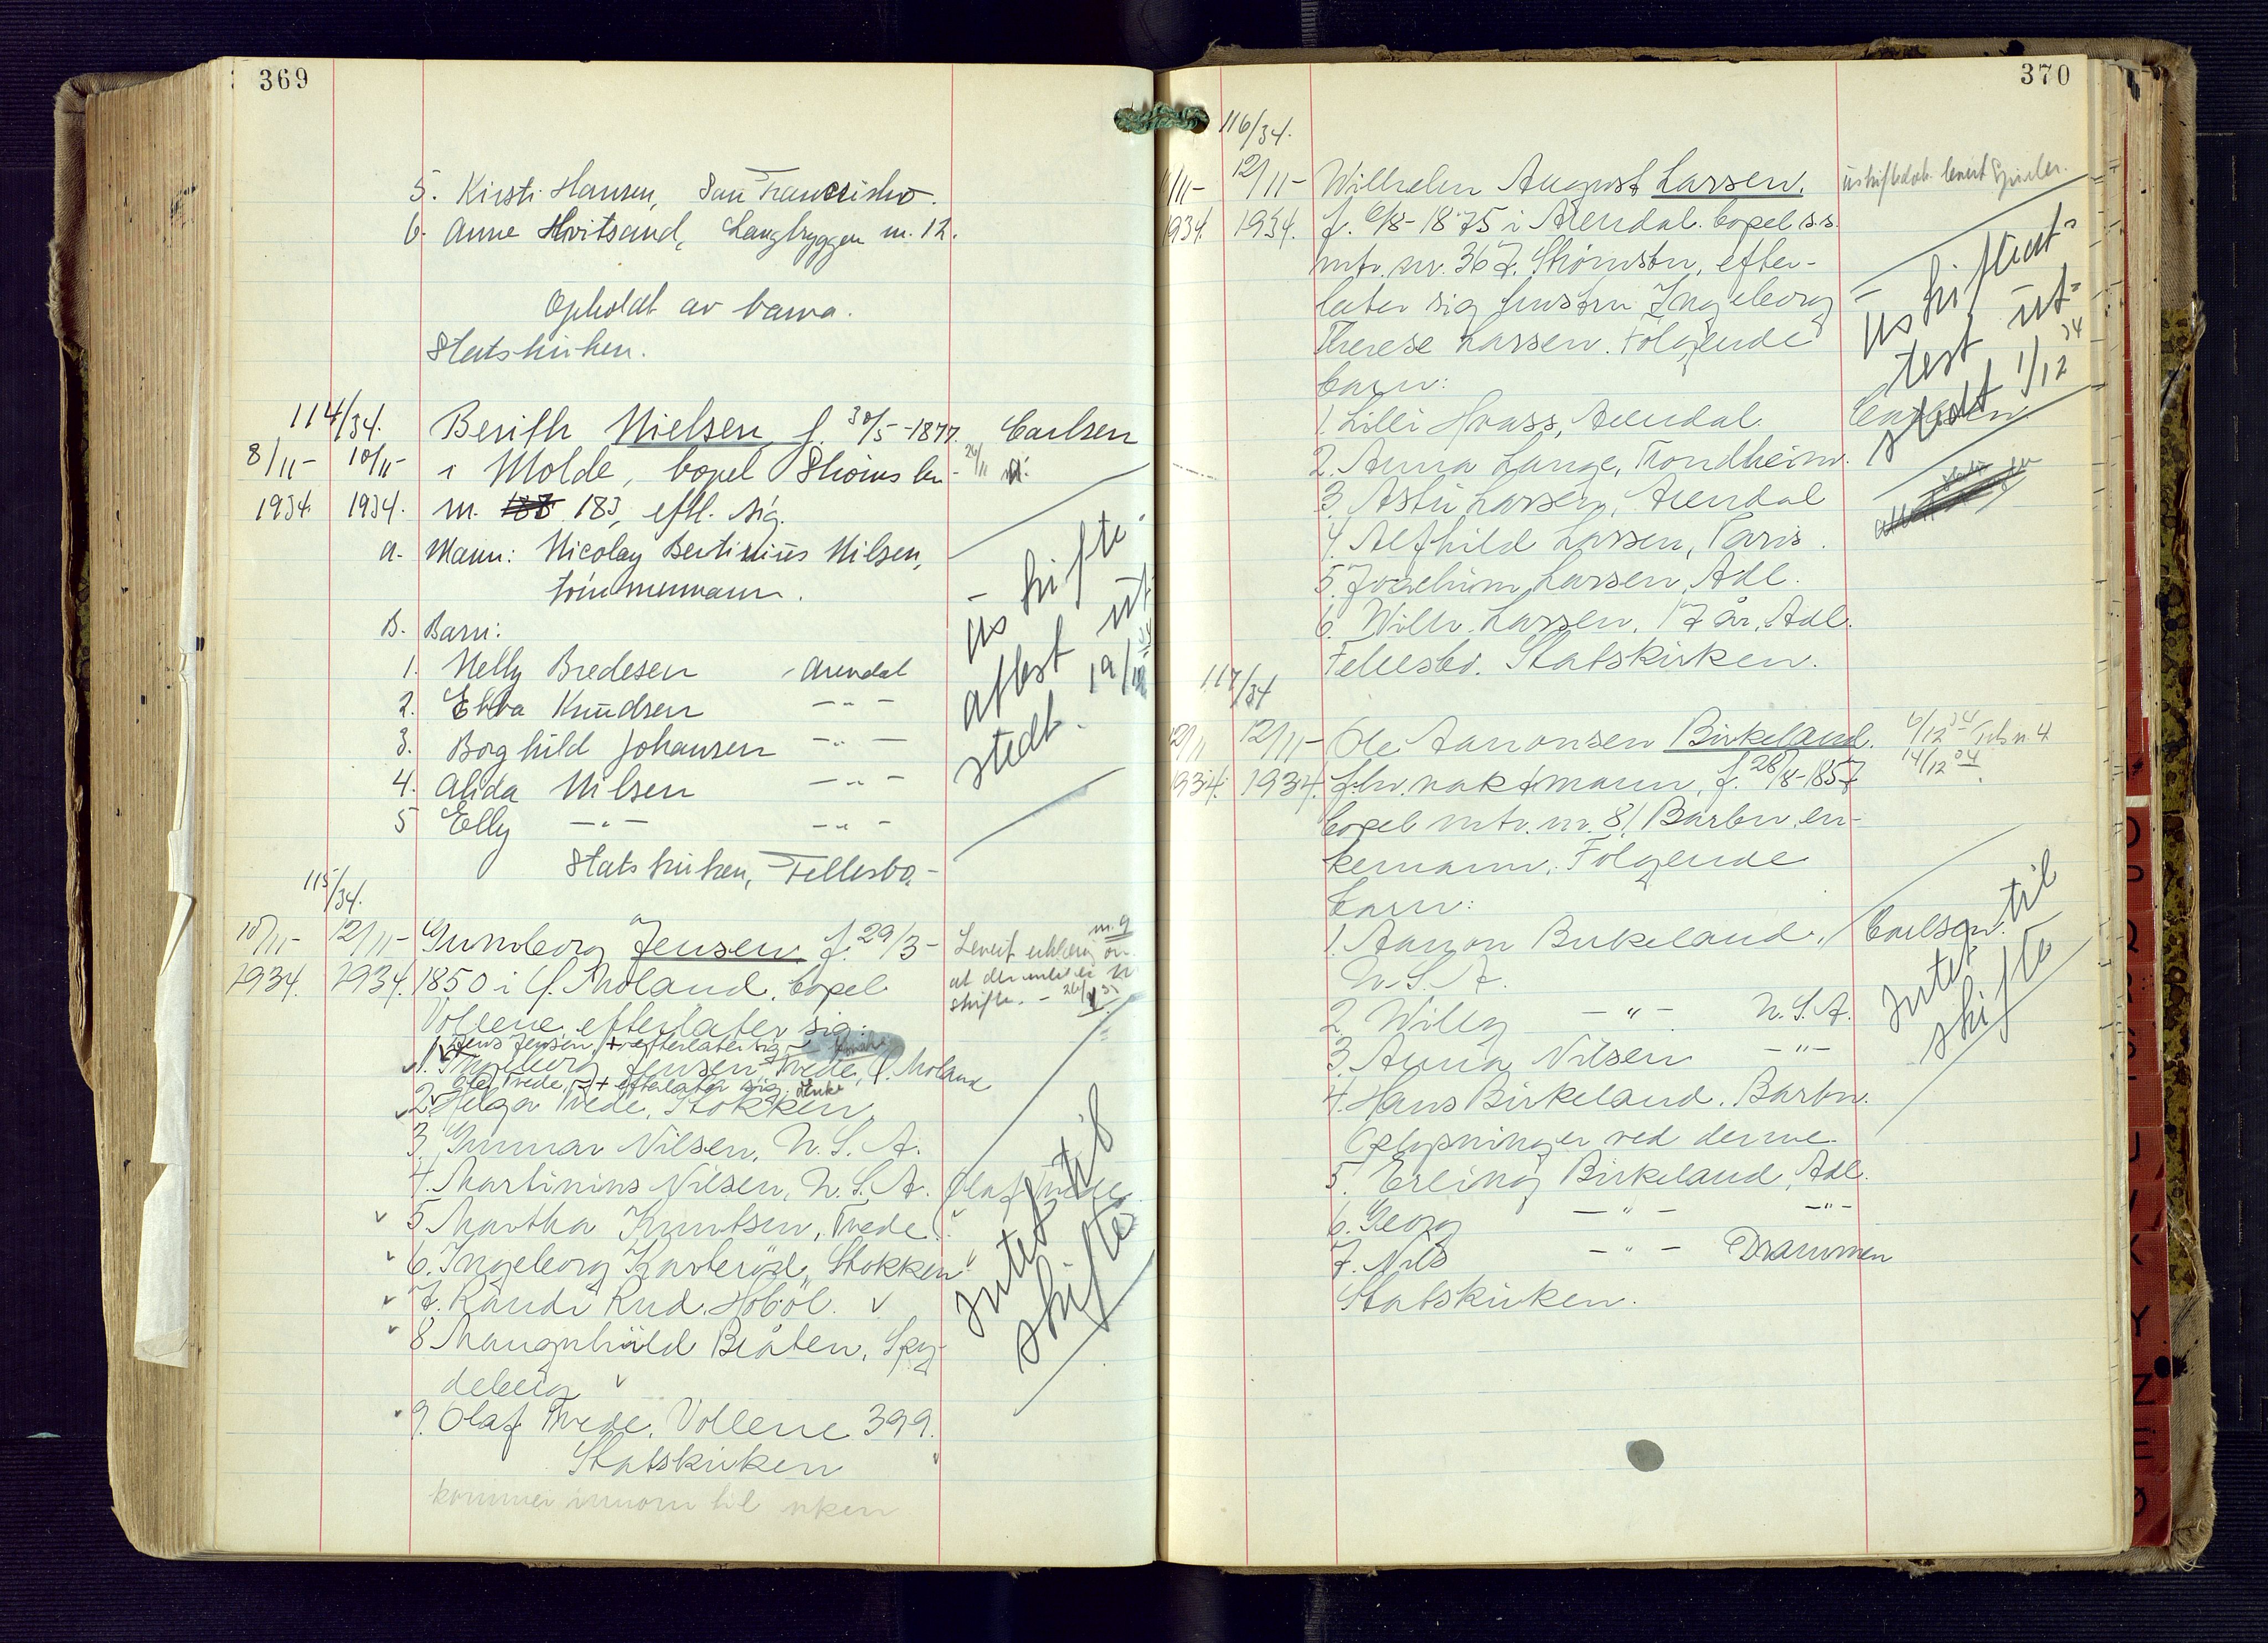 369
5. Kirsti Hansen, San Francisko.
6. Anne Hvitsand, Langbryggen m. 12.
Opholdt av barna.
Statskirken.
114/34.
8/11- 1934.
10/11- 1934.
Berith Nielsen f. 30/5-1877.
i Molde, bopel Strömsbu
m. 183, eftl. sig.
a. Mann: Nicolay Bertinius Nilsen,
tömmermann.
B. Barn:
1. Nelly Bredesen Arendal
2. Ebba Knudsen -"-
3. Borghild Johansen -"-
4. Alida Nilsen -"-
5 Elly -"- -"-
Statskirken, Fellesbo.-
Carlsen
26/11
Uskifte-
attest ut-
stedt.
115/34.
10/11- 1934.
12/11- 1934.
Gunnborg Jensen f. 29/3-
1850 i Ø. Moland, bopel
Vollene, efterlater sig:
1. Jens Jensen, + efterlater sig
1. Ingeborg Jensen Tvede, Ø. Moland
Ole Tvede, + efterlater sig Enke
2. Helga Tvede, Stokken,
3. Gunnar Nilsen, U.S.A.
4. Martinius Nilsen, U.S.A.
5 Martha Knutsen, Tvede
6. Ingeborg Kavleröd, Stokken
7. Randi Rud, Hobøl.
8 Mangnhild Bråten, Spy-
deberg
9. Olaf Tvede, Vollene 399.
Statskirken
kommer innom til uken
m. 9
Levert erklæring om
at der intet er
skifte.
Olaf Tvede
Intet til
skifte
370
116/34.
11/11- 1934.
12/11- 1934.
Wilhelm August Larsen.
f. 6/8-1875 i Arendal. bopel s.s.
mtr. nr. 367. Strömsbu, efter-
later sig hustru Ingeborg
Therese Larsen. Følgende
barn:
1. Lilli Hvass, Arendal.
2. Anna Lange, Trondheim.
3. Astri Larsen, Arendal
4. Alfhild Larsen, Paris.
5. Joachim Larsen, Adl.
6. Wilh. Larsen, 17 år, Adl.
Fellesbo. Statskirken.
Uskifteat-
test ut-
stedt 1/12 34
Carlsen
117/34
12/11 1934.
12/11- 1934.
Ole Aanonsen Birkeland.
fhv. vaktmann, f. 26/8-1857
bopel mtr. nr. 81, Barbu, en-
kemann. Følgende
barn:
1. Aanon Birkeland,
U.S.A.
2. Willy -"- U.S.A.
3. Anna Nilsen -"-
4. Hans Birkeland. Barbu.
Oplysninger ved denne.
5. Erling Birkeland, Adl.
6. Georg -"- -"-
7. Nils -"- Drammen
Statskirken.
6/12 34
14/12 34
Carlsen.
Intet til
skifte